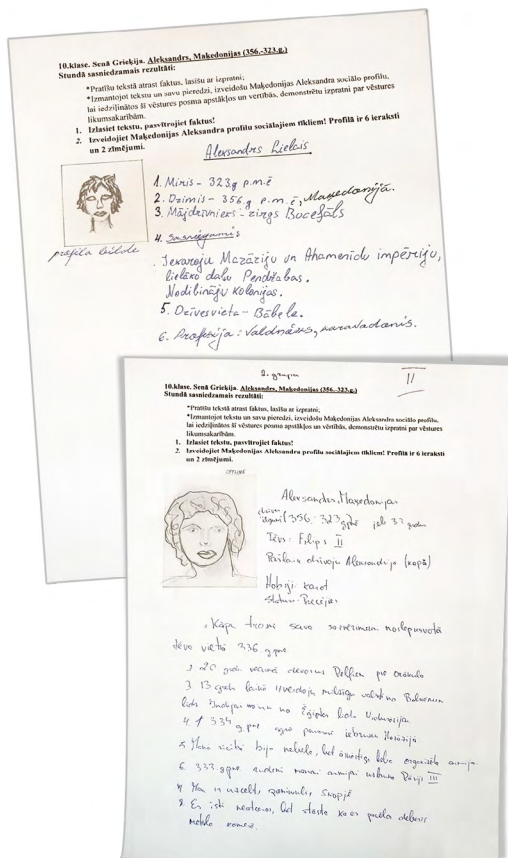 10.klase. Senā Grieķija. Aleksandrs, Maķedonijas (356.-323.g.)
Stundā sasniedzamais rezultāti:
*Pratīšu tekstā atrast faktus, lasīšu ar izpratni;
*Izmantojot tekstu un savu pieredzi, izveidošu Maķedonijas Aleksandra sociālo profilu,
lai iedziļinātos šī vēstures posma apstākļos un vērtībās, demonstrētu izpratni par vēstures
likumsakarībām.
1. Izlasiet tekstu, pasvītrojiet faktus!
2. Izveidojiet Maķedonijas Aleksandra profilu sociālajiem tīkliem! Profilā ir 6 ieraksti
un 2 zīmējumi.
Aleksandrs Lielais
profila bilde
1. Miris - 323g p.m.ē
2. Dzimis - 356 g p.m.ē, Maķedonijā.
3. Mājdzīvnieks - zirgs Bucefāls
4. Sasniegumi
Iekaroju Mazāziju un Ahamenīdu impēriju,
lielāko daļu Pendžabas.
Nodibināju kolonijas.
5. Dzīvesvieta - Bābele.
6. Profesija: Valdnieks, karavadonis.
2. grupa
II
10.klase. Senā Grieķija. Aleksandrs, Maķedonijas (356.-323.g.)
Stundā sasniedzamais rezultāti:
*Pratīšu tekstā atrast faktus, lasīšu ar izpratni;
*Izmantojot tekstu un savu pieredzi, izveidošu Maķedonijas Aleksandra sociālo profilu,
lai iedziļinātos šī vēstures posma apstākļos un vērtībās, demonstrētu izpratni par vēstures
likumsakarībām.
1. Izlasiet tekstu, pasvītrojiet faktus!
2. Izveidojiet Maķedonijas Aleksandra profilu sociālajiem tīkliem! Profilā ir 6 ieraksti
un 2 zīmējumi.
OFFLINE
Aleksandrs, Maķedonijas
(356-323 g.pmē
Tēvs: Filips II
dzīvoju Aleksandrijā (kapā)
Hobiji: karot
Status: Precējies
Kāpu tronī savo
tēva vietā 336 g.pmē
20 gadu vecumā devos uz Delfiem pie orākula
3. 13 gadu laikā izveidoju milzīgu valsti no Balkāniem
līdz Indijai un no Ēģiptes līdz
4. 334 g.pmē iebruka Mazāzijā
5. Mana bija neliela, bet labi organizēta armija
6. 333 g.pmē rudenī manai armijai uzbruka Dārijs III
Skopjē
8. Es īsti neatceros, bet stāsta ka es